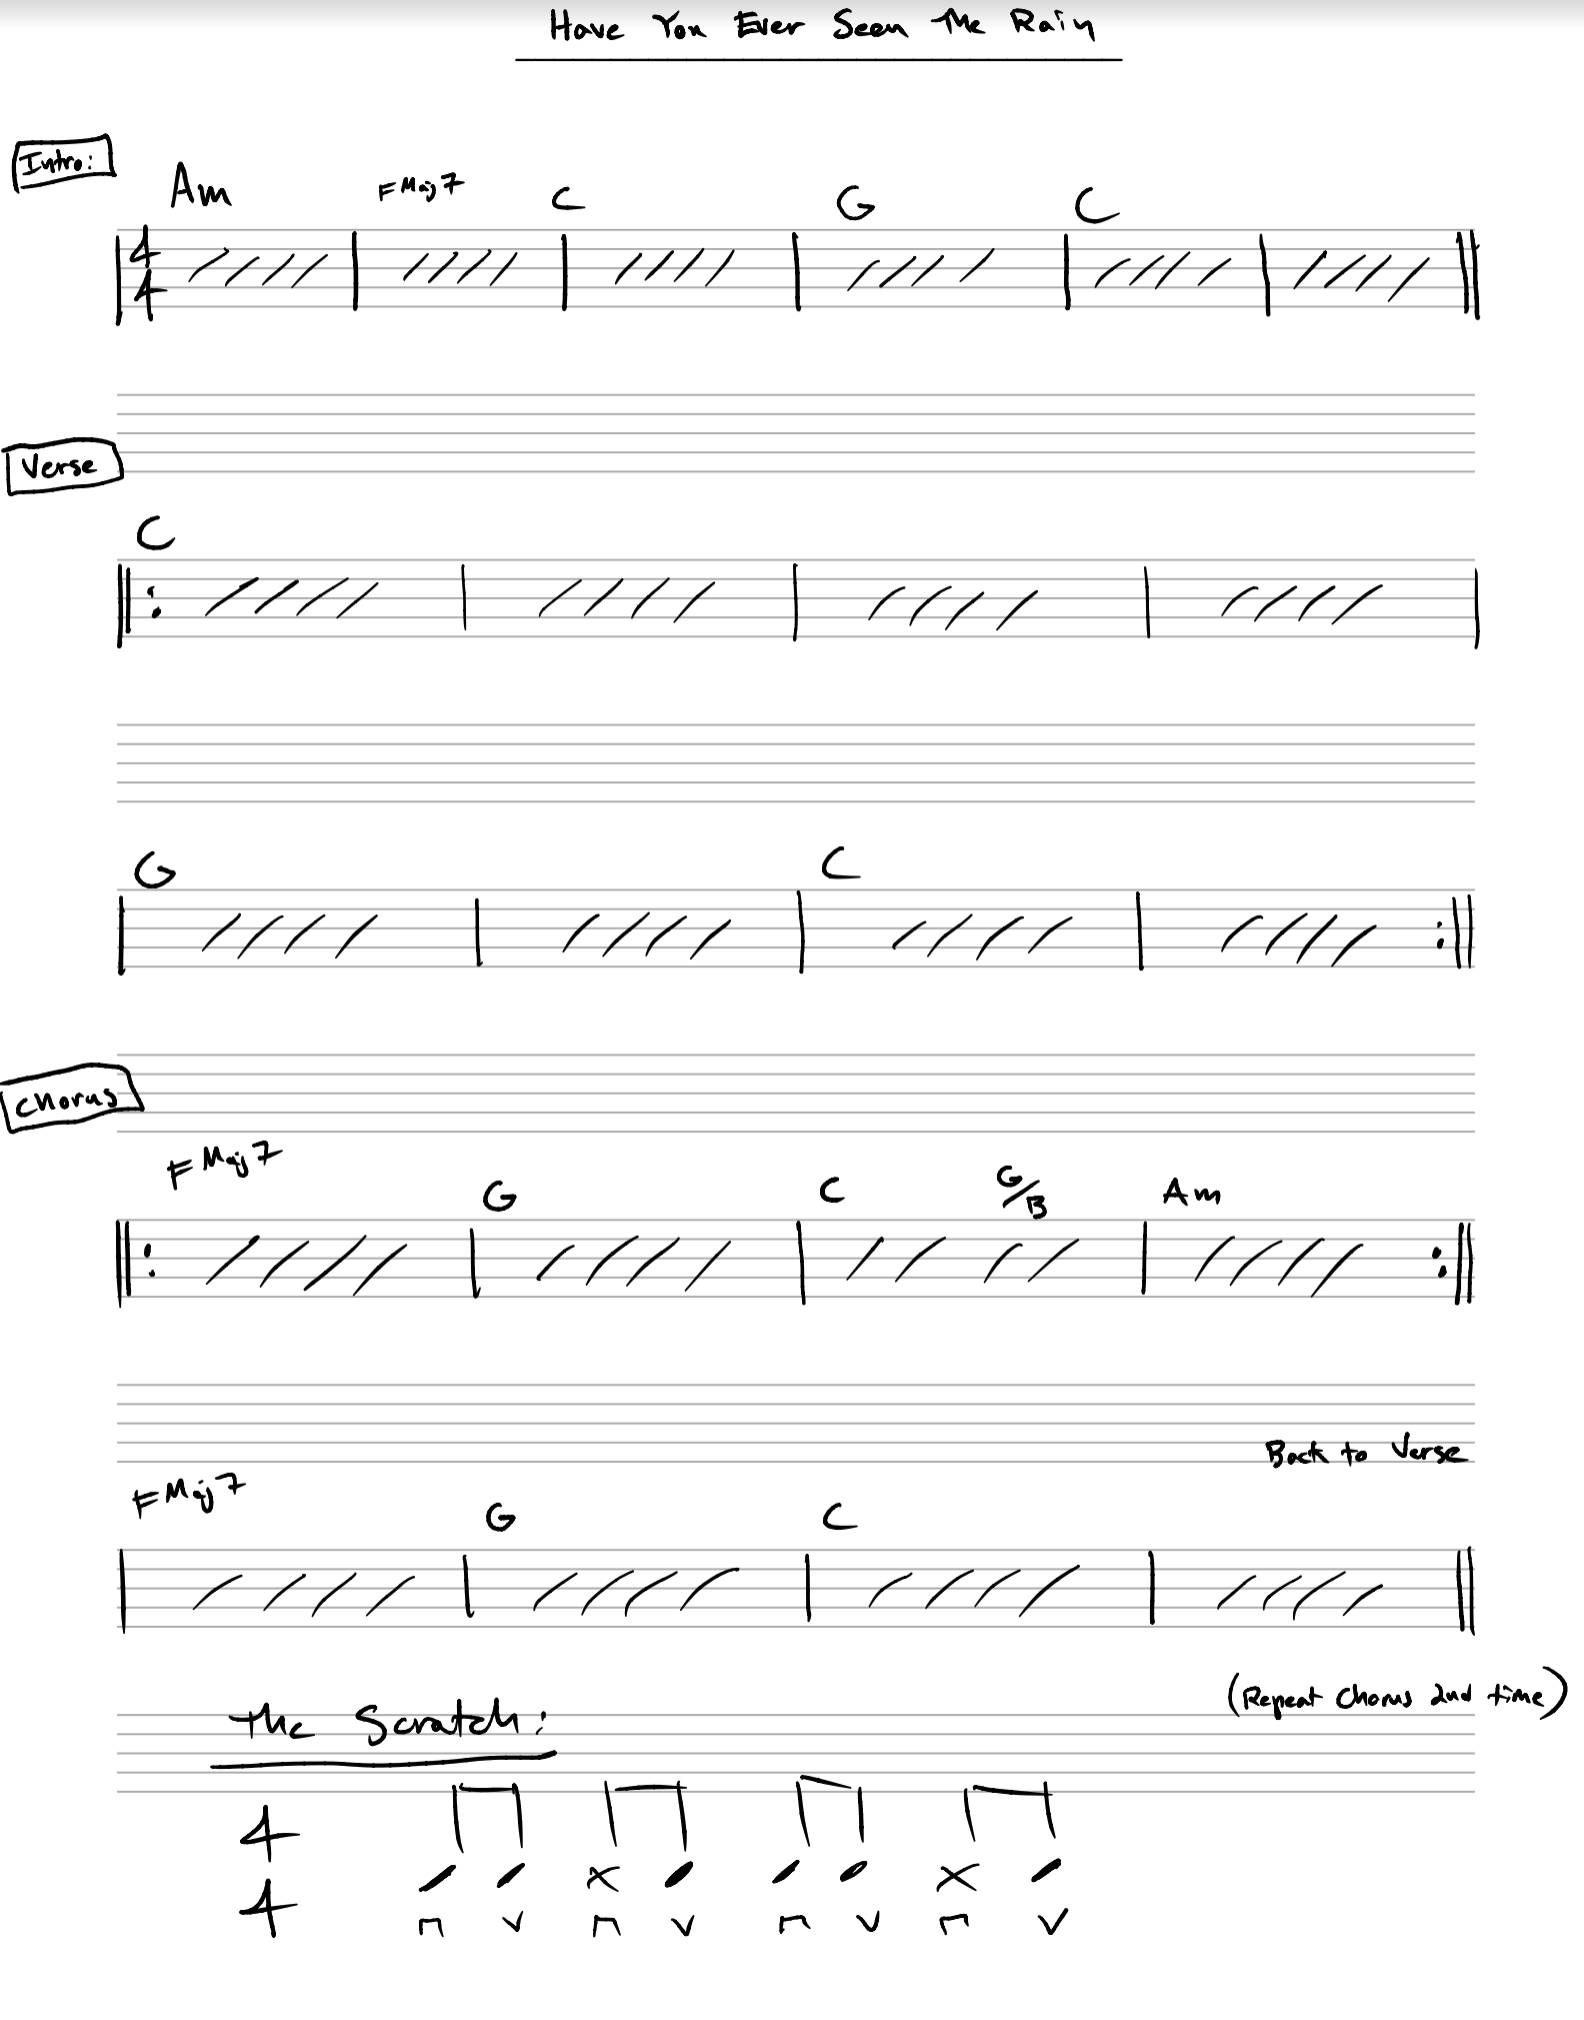 Have You Ever Seen The Rain
Intro:
Am FMaj7 C G C
4
4
Verse
C
G C
Chorus
FMaj7 G C G/B Am
Back to Verse
FMaj7 G C
(Repeat Chorus 2nd time)
The Scratch:
4
4